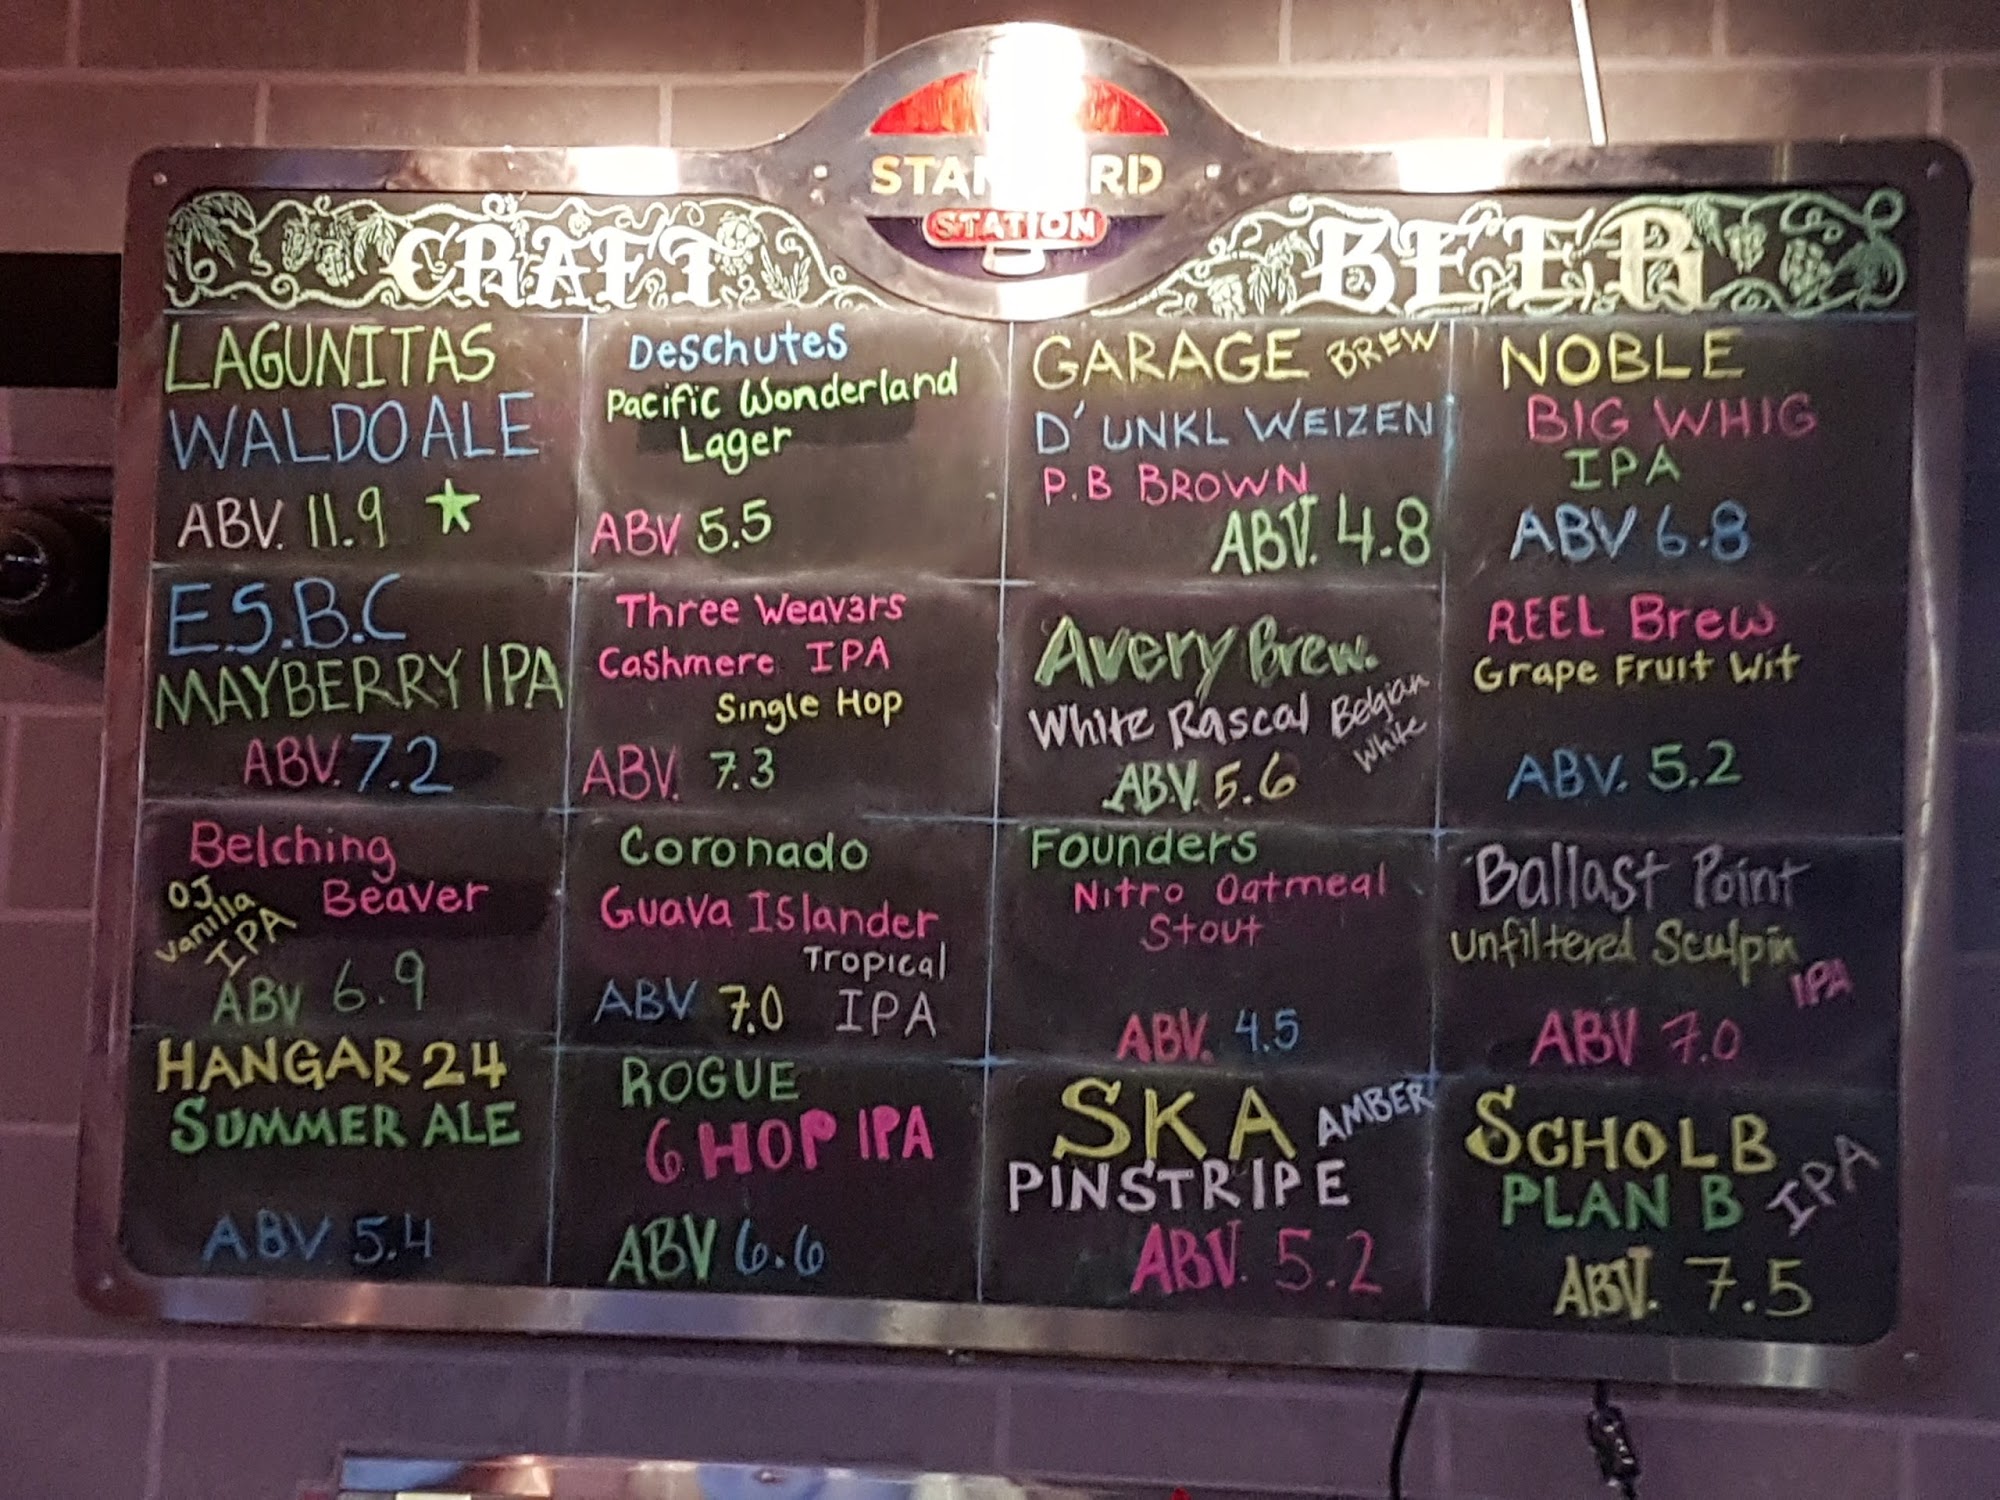 STATION
CRAFT
BEER
LAGUNITAS
WALDO ALE
ABV. 11.9
DESCHUTES
Pacific Wonderland
Lager
ABV. 5.5
GARAGE BREW
D'UNKL WEIZEN
P.B BROWN
ABV. 4.8
NOBLE
BIG WHIG
IPA
ABV 6.8
E.S.B.C
MAYBERRY IPA
ABV. 7.2
Three Weav3rs
Cashmere IPA
Single Hop
ABV. 7.3
Avery Brew.
White Rascal Belgian
White
ABV. 5.6
REEL Brew
Grape Fruit Wit
ABV. 5.2
Belching
Beaver
OJ
Vanilla
IPA
ABV 6.9
Coronado
Guava Islander
Tropical
IPA
ABV 7.0
Founders
Nitro Oatmeal
Stout
ABV. 4.5
Ballast Point
Unfiltered Sculpin
IPA
ABV 7.0
HANGAR 24
SUMMER ALE
ABV 5.4
ROGUE
6 HOP IPA
ABV 6.6
SKA AMBER
PINSTRIPE
ABV. 5.2
SCHOLB
PLAN B IPA
ABV. 7.5